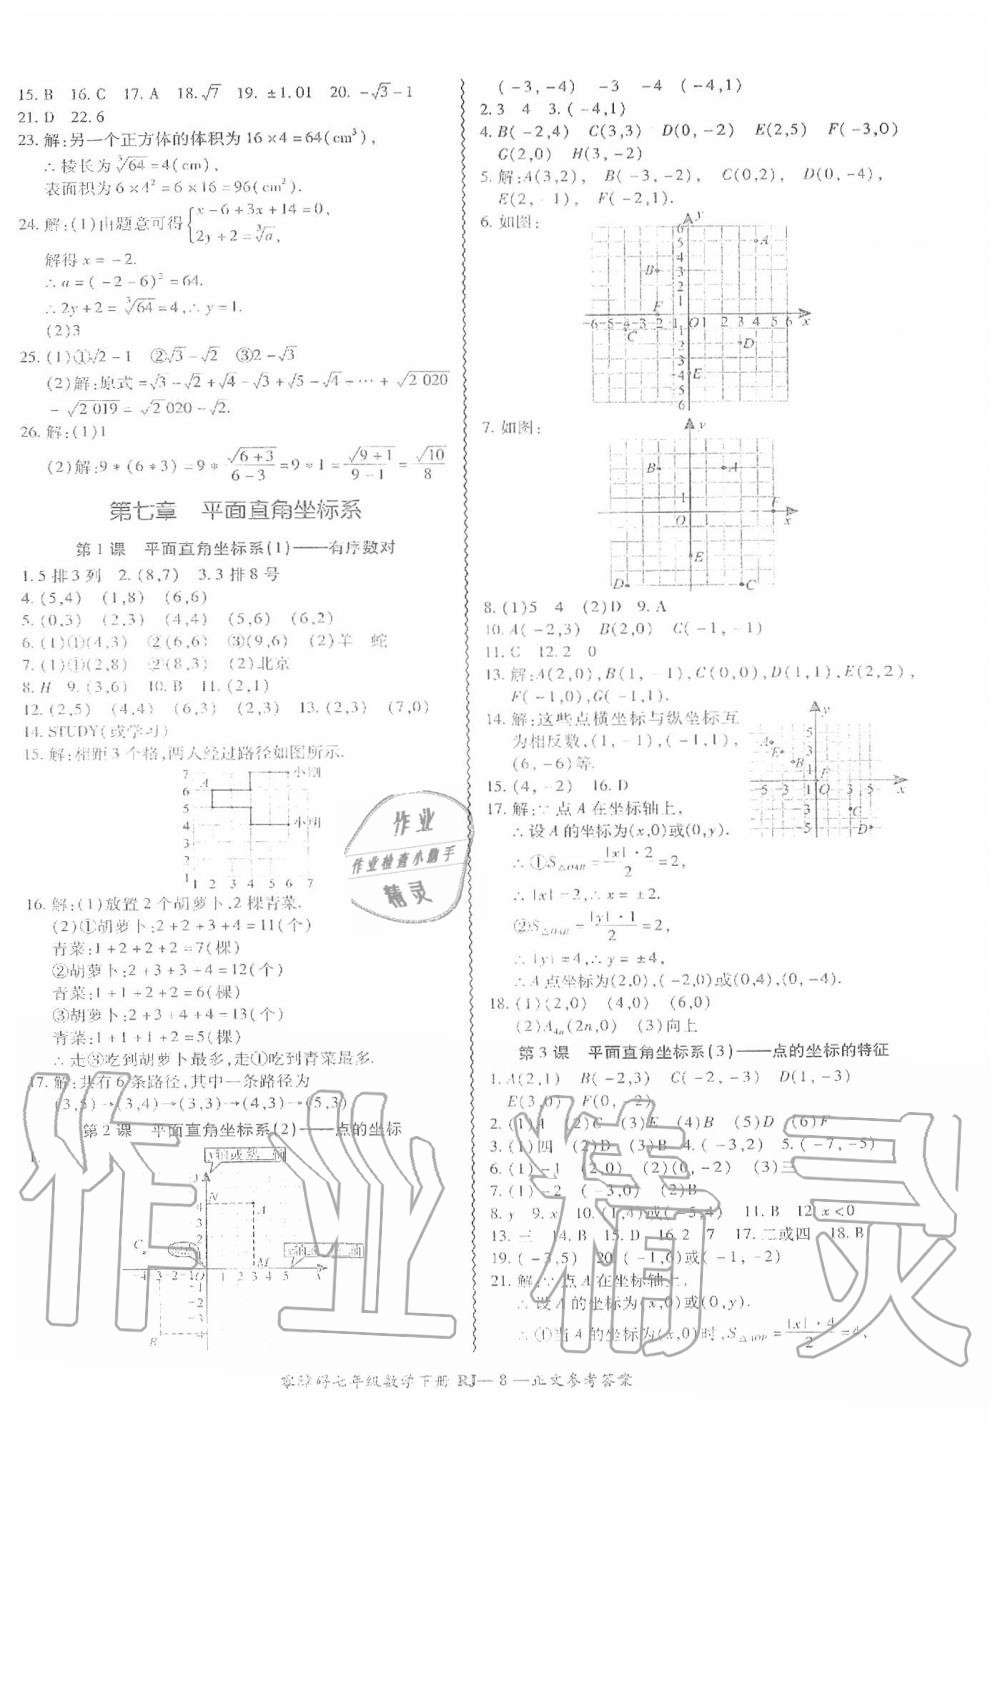 15. B 16. C 17. A 18. √7 19. ±1.01 20. -√3-1
21. D 22. 6
23. 解:另一个正方体的体积为16×4=64(cm³),
∴棱长为∛64=4(cm),
表面积为6×4²=6×16=96(cm²).
24. 解:(1)由题意可得{x-6+3x+14=0,
2y+2=∛a,
解得x=-2.
∴a=(-2-6)²=64.
∴2y+2=∛64=4,∴y=1.
(2)3
25. (1)①√2-1 ②√3-√2 ③2-√3
(2)解:原式=√3-√2+√4-√3+√5-√4-…+√2 020
-√2 019=√2 020-√2.
26. 解:(1)1
(2)解:9*(6*3)=9*√(6+3)/(6-3)=9*1=√(9+1)/(9-1)=√10/8
第七章 平面直角坐标系
第1课 平面直角坐标系(1)——有序数对
1. 5排3列 2. (8,7) 3. 3排8号
4. (5,4) (1,8) (6,6)
5. (0,3) (2,3) (4,4) (5,6) (6,2)
6. (1)①(4,3) ②(6,6) ③(9,6) (2)羊 蛇
7. (1)①(2,8) ②(8,3) (2)北京
8. H 9. (3,6) 10. B 11. (2,1)
12. (2,5) (4,4) (6,3) (2,3) 13. (2,3) (7,0)
14. STUDY(或学习)
15. 解:相距3个格,两人经过路径如图所示.
7 小刚
6
5
4 小明
3
2
1
1 2 3 4 5 6 7
16. 解:(1)放置2个胡萝卜,2棵青菜.
(2)①胡萝卜:2+2+3+4=11(个)
青菜:1+2+2+2=7(棵)
②胡萝卜:2+3+3+4=12(个)
青菜:1+1+2+2=6(棵)
③胡萝卜:2+3+4+4=13(个)
青菜:1+1+1+2=5(棵)
∴走③吃到胡萝卜最多,走①吃到青菜最多.
17. 解:共有6条路径,其中一条路径为
(3,5)→(3,4)→(3,3)→(4,3)→(5,3)
第2课 平面直角坐标系(2)——点的坐标
1.
N A
C
M
B
(-3,-4) -3 -4 (-4,1)
2. 3 4 3. (-4,1)
4. B(-2,4) C(3,3) D(0,-2) E(2,5) F(-3,0)
G(2,0) H(3,-2)
5. 解:A(3,2), B(-3,-2), C(0,2), D(0,-4),
E(2,-1), F(-2,1).
6. 如图:
y
A
B
F
-6-5-4-3-2-1 O 1 2 3 4 5 6 x
C D
E
7. 如图:
B A
1
O 1 F x
E
D C
8. (1)5 4 (2)D 9. A
10. A(-2,3) B(2,0) C(-1,-1)
11. C 12. 2 0
13. 解:A(2,0),B(1,-1),C(0,0),D(1,1),E(2,2),
F(-1,0),G(-1,1).
14. 解:这些点横坐标与纵坐标互
为相反数,(1,-1),(-1,1),
(6,-6)等.
y
A
E
B
F
-5 -3 -1 O 1 3 5 x
C
D
15. (4,-2) 16. D
17. 解:∵点A在坐标轴上,
∴设A的坐标为(x,0)或(0,y).
∴①S△OAB=|x|·2/2=2,
∴|x|=2,∴x=±2.
②S△OAB=|y|·1/2=2,
∴|y|=4,∴y=±4,
∴A点坐标为(2,0),(-2,0)或(0,4),(0,-4).
18. (1)(2,0) (4,0) (6,0)
(2)A₄ₙ(2n,0) (3)向上
第3课 平面直角坐标系(3)——点的坐标的特征
1. A(2,1) B(-2,3) C(-2,-3) D(1,-3)
E(3,0) F(0,-2)
2. (1)A (2)C (3)E (4)B (5)D (6)F
3. (1)四 (2)D (3)B 4. (-3,2) 5. (-7,-5)
6. (1)-1 (2,0) (2)(0,-2) (3)三
7. (1)-2 (-3,0) (2)B
8. y 9. x 10. (1,4)或(-5,4) 11. B 12. x<0
13. 三 14. B 15. D 16. 2 7 17. 二或四 18. B
19. (-3,5) 20. (-1,6)或(-1,-2)
21. 解:∵点A在坐标轴上,
∴设A的坐标为(x,0)或(0,y).
∴①当A的坐标为(x,0)时,S△AOP=|x|·4/2=4,
零障碍七年级数学下册 RJ—8—正文参考答案
作业
作业检查小帮手
精灵
作业精灵